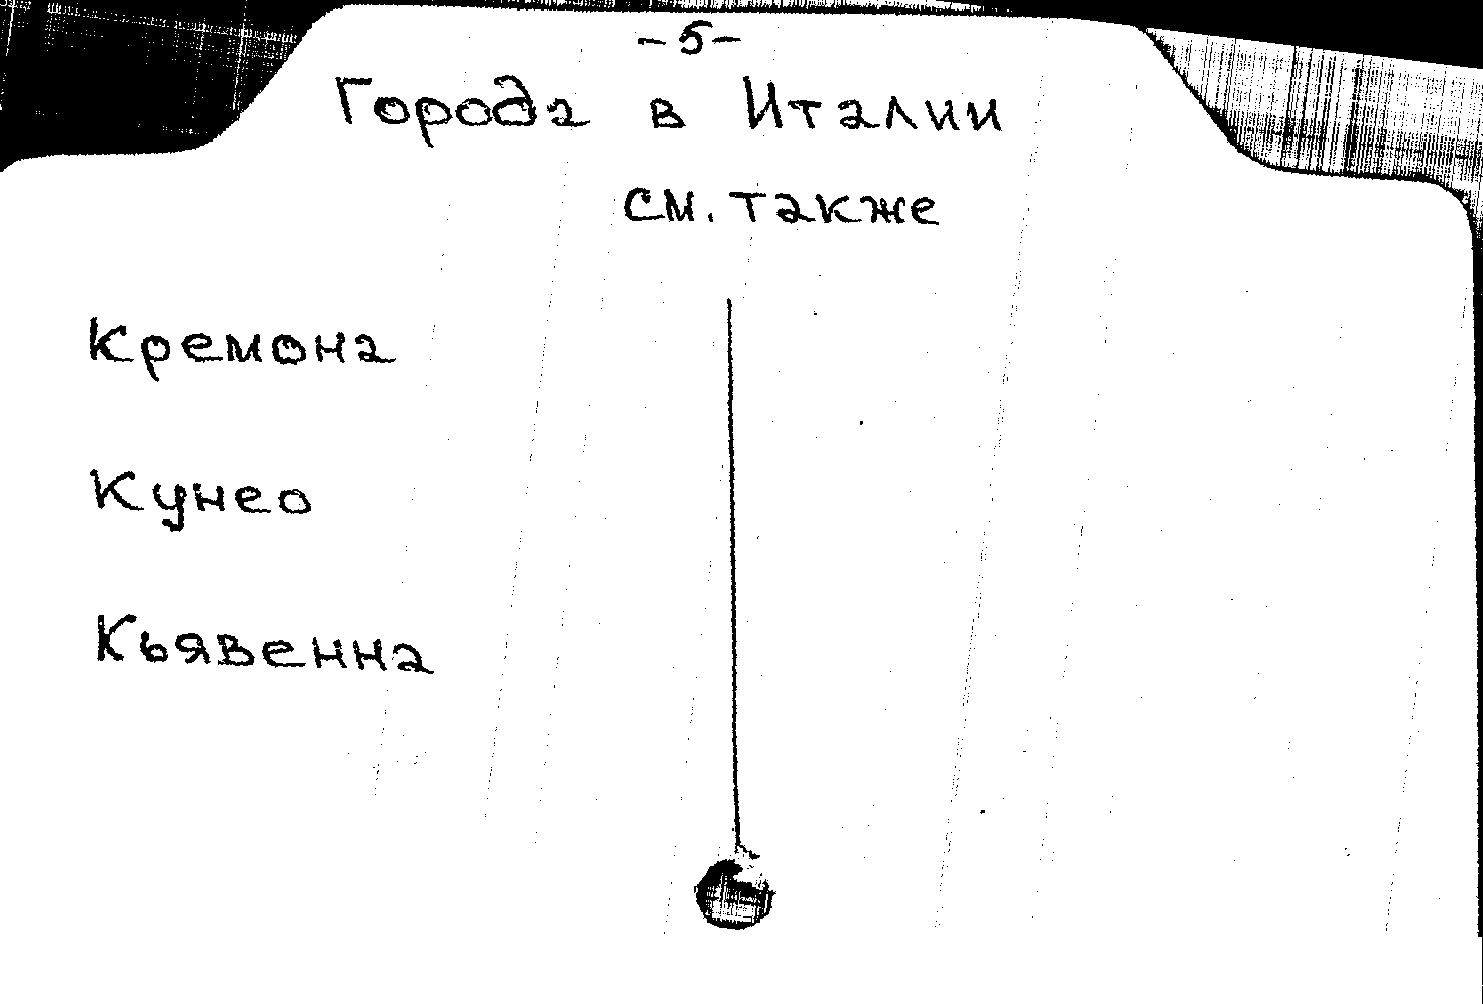 -5-
Города в Италии
см. также
Кремона
Кунео
Кьявенна